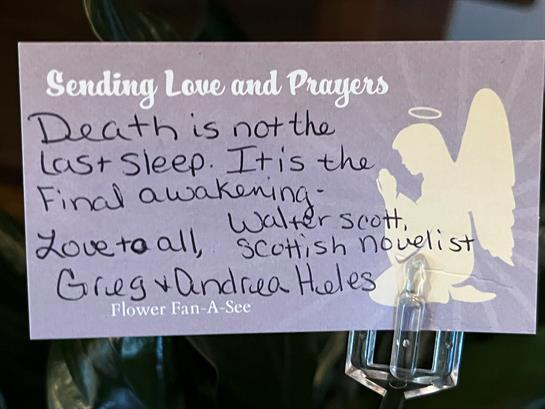 Sending Love and Prayers
Death is not the
Last Sleep. It is the
Final awakening-
Walter Scott,
Love to all, Scottish novelist
Greg + Andrea Heles
Flower Fan-A-See